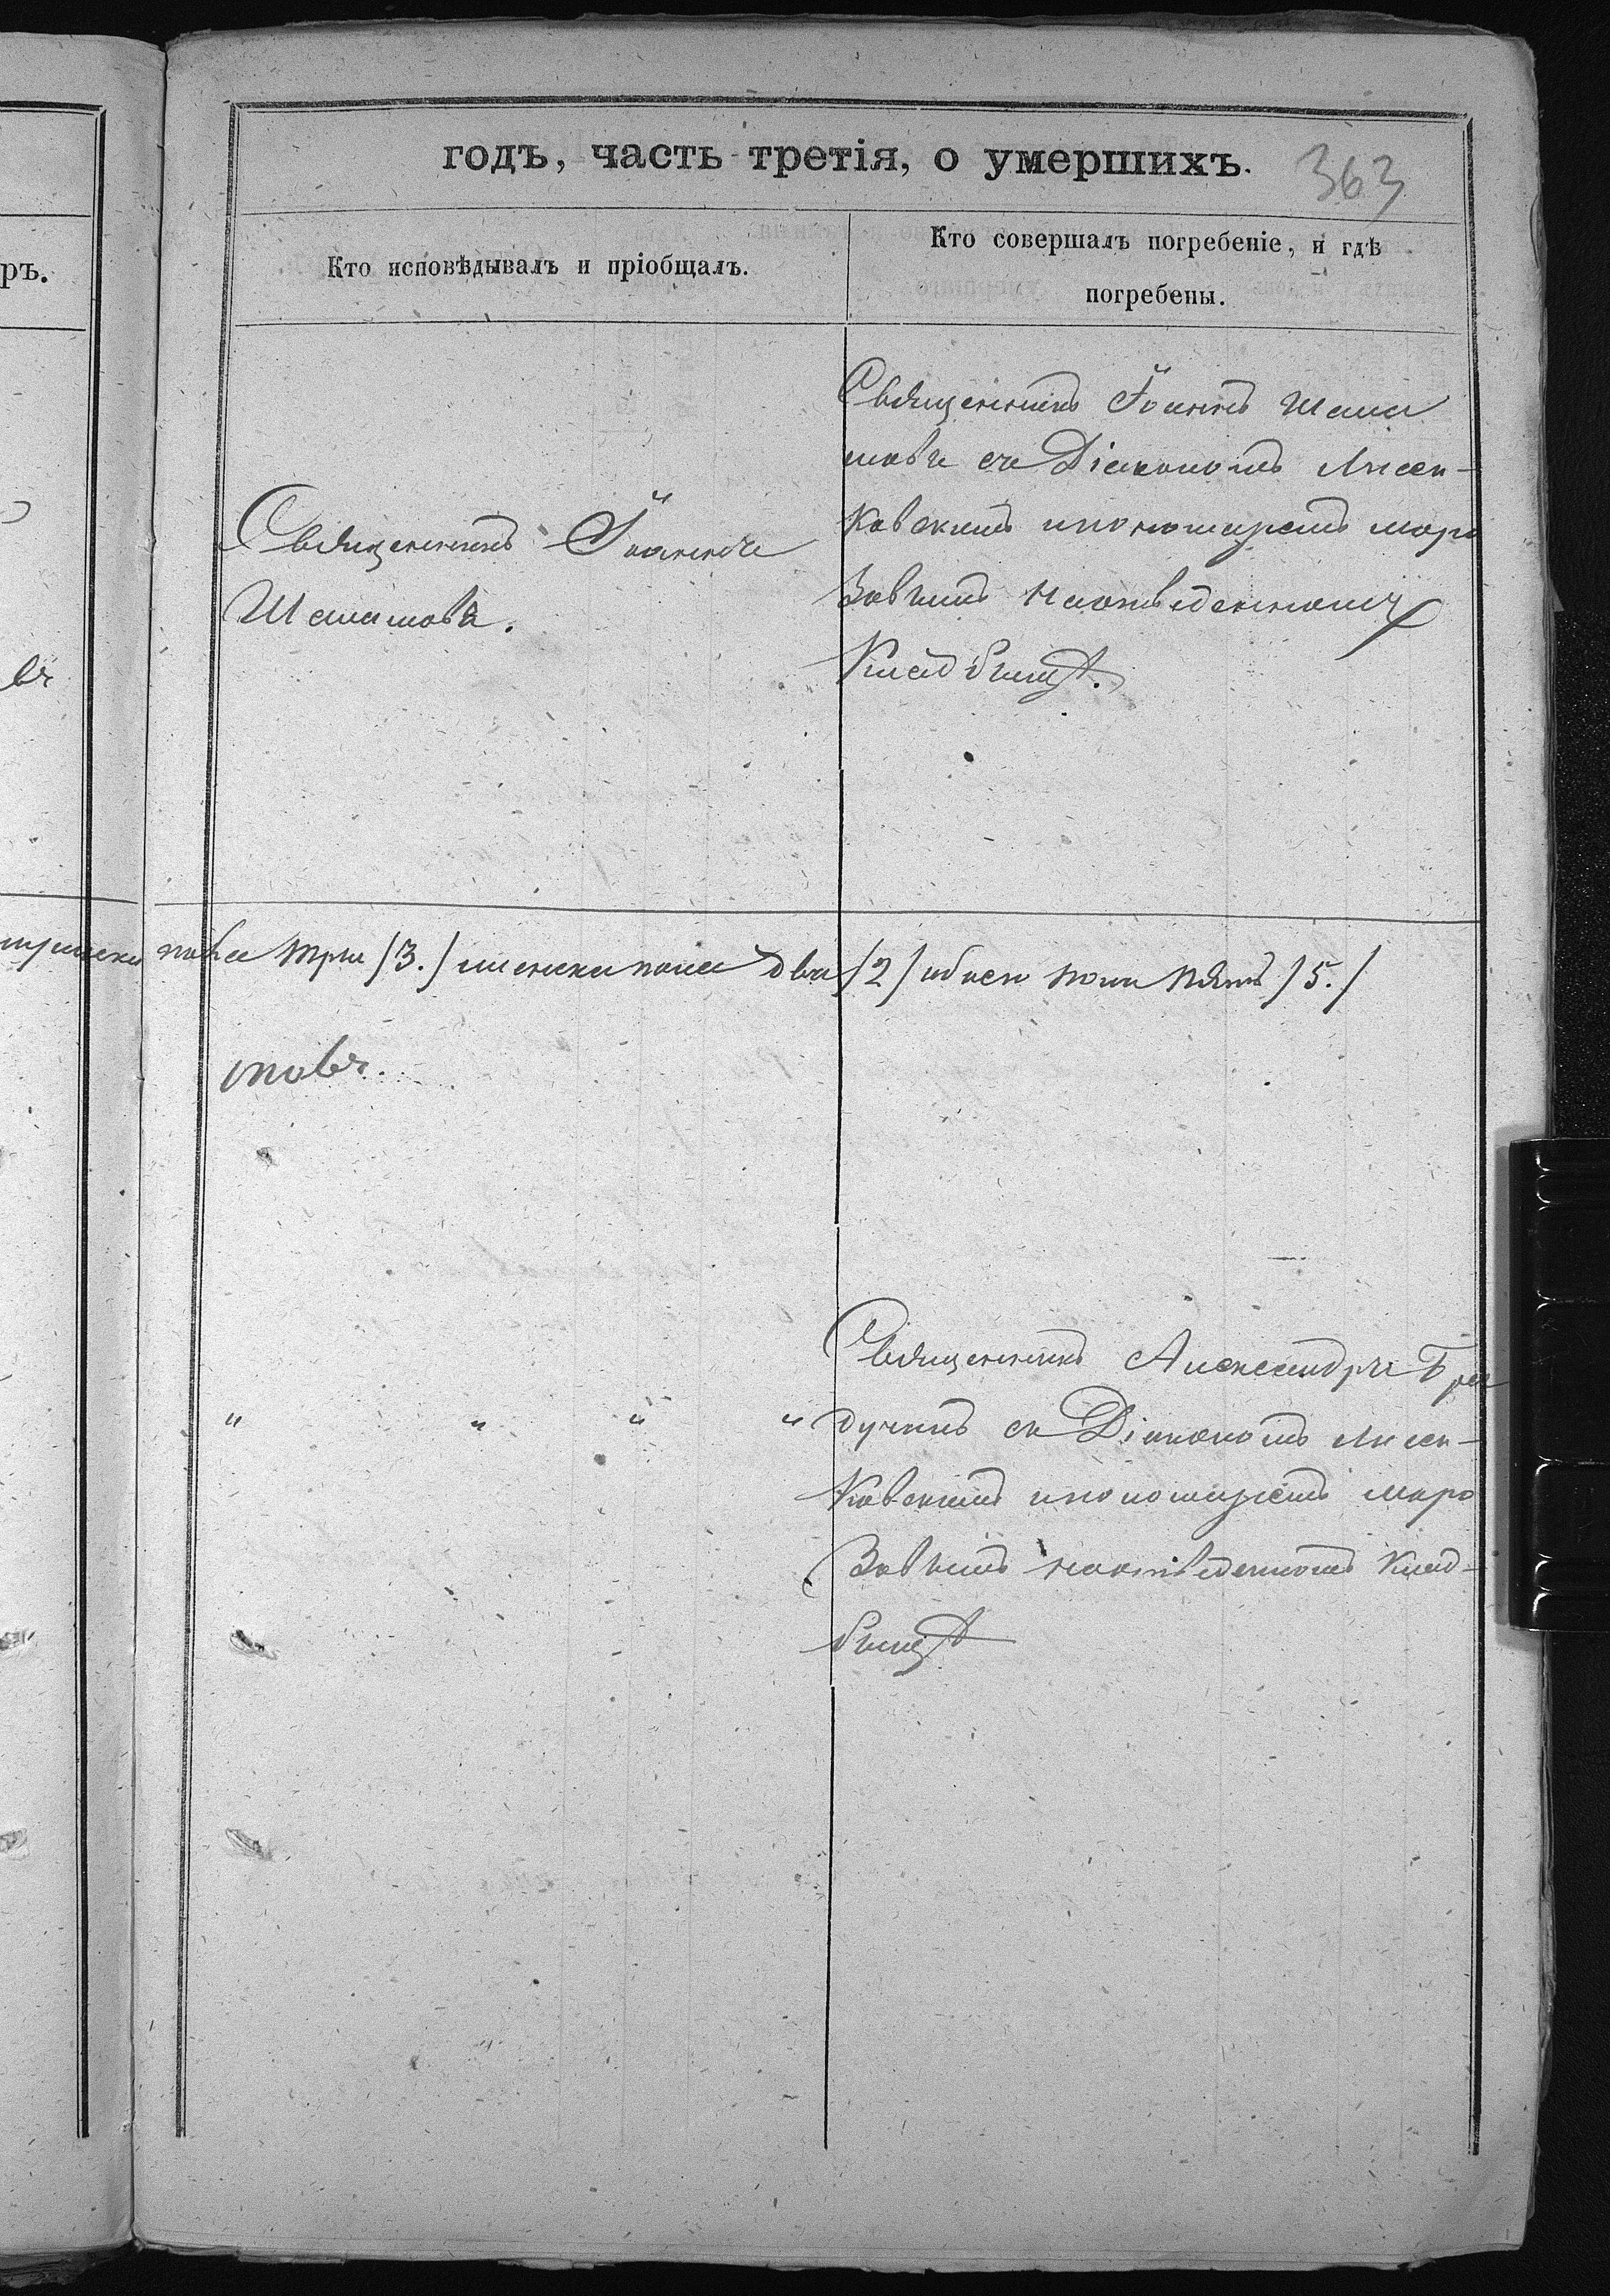 годъ, часть третія, о умершихъ.
363
ръ.
Кто исповѣдывалъ и пріобщалъ.
Кто совершалъ погребеніе, и гдѣ
погребены.
въ
Священникъ Іоаннъ
Шашловъ.
Священникъ Іоаннъ
съ Діакономъ Лисен-
ковскимъ и пономаремъ Моро
зовымъ на отведенному
кладбищѣ.
пола три /3./ женска пола два /2/ обоего пола пять /5./
товъ.
" " " "
Священникъ Александръ Бра
дучинъ съ Діакономъ Лисен-
ковскимъ и пономаремъ Моро
зовымъ на отведенномъ клад-
бищѣ